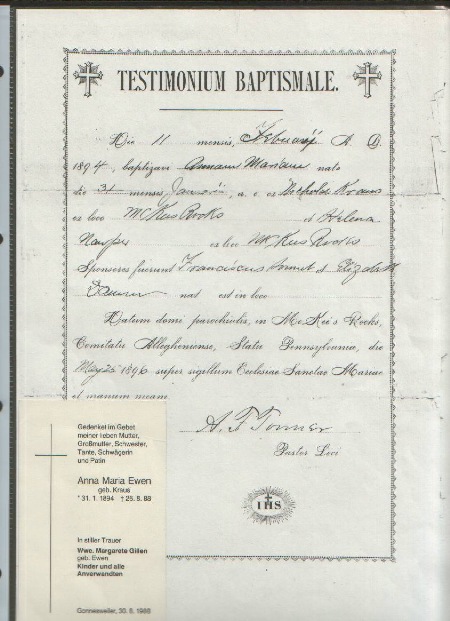 TESTIMONIUM BAPTISMALE.
Die 11 mensis, February A. D.
1894, baptizavi Annam Mariam nato
die 31 mensis Januarii, a. c. ex Nicholas Kraus
ex loco McKees Rocks et Helena
ex loco McKees Rocks
Sponsores fuerunt Franciscus et Elizabeth
nat est in loco
Datum domi parochialis, in McKee's Rocks,
Comitatu Alleghaniense, Statu Pennsylvania, die
1896 super sigillum Ecclesiae Sanctae Mariae
et manum meam.
Pastor Loci
IHS
Gedenket im Gebet
meiner lieben Mutter,
Großmutter, Schwester,
Tante, Schwägerin
und Patin
Anna Maria Ewen
geb. Kraus
* 31. 1. 1894 † 26. 8. 88
In stiller Trauer
Wwe. Margarete Gillen
geb. Ewen
Kinder und alle
Anverwandten
Gonnesweiler, 30. 8. 1988